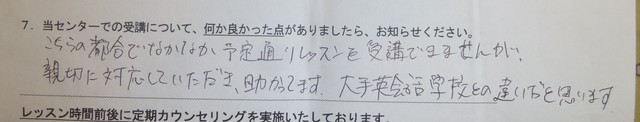 7. 当センターでの受講について、何か良かった点がありましたら、お知らせください。
こちらの都合でなかなか予定通りレッスンを受講できませんが、
親切に対応していただき、助かってます。大手英会話学校との違いだと思います
レッスン時間前後に定期カウンセリングを実施いたしております。